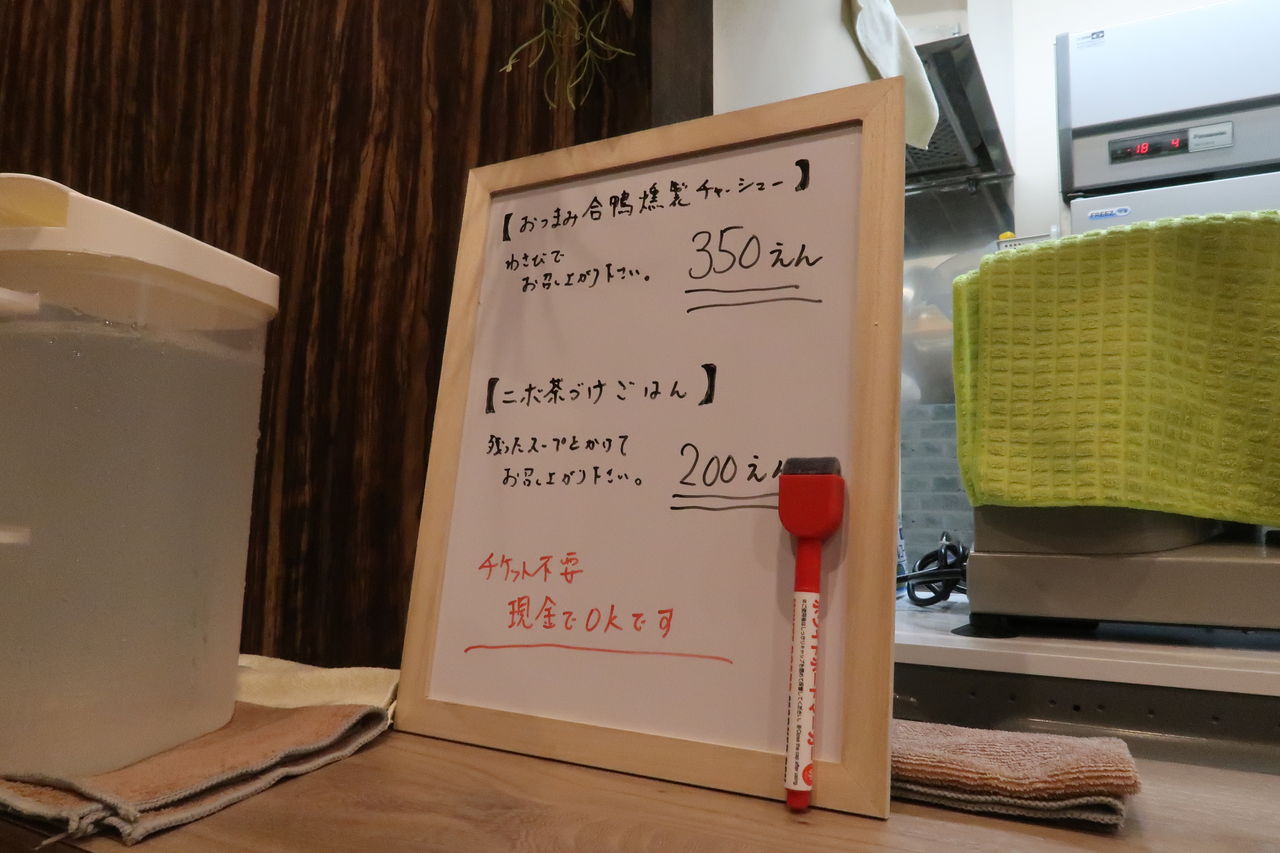 【おつまみ合鴨燻製チャーシュー】
わさびで
お召し上がり下さい。
350えん
【ニボ茶づけごはん】
残ったスープとかけて
お召し上がり下さい。
200えん
チケット不要
現金でOKです
18 4
Panasonic
FREEZ